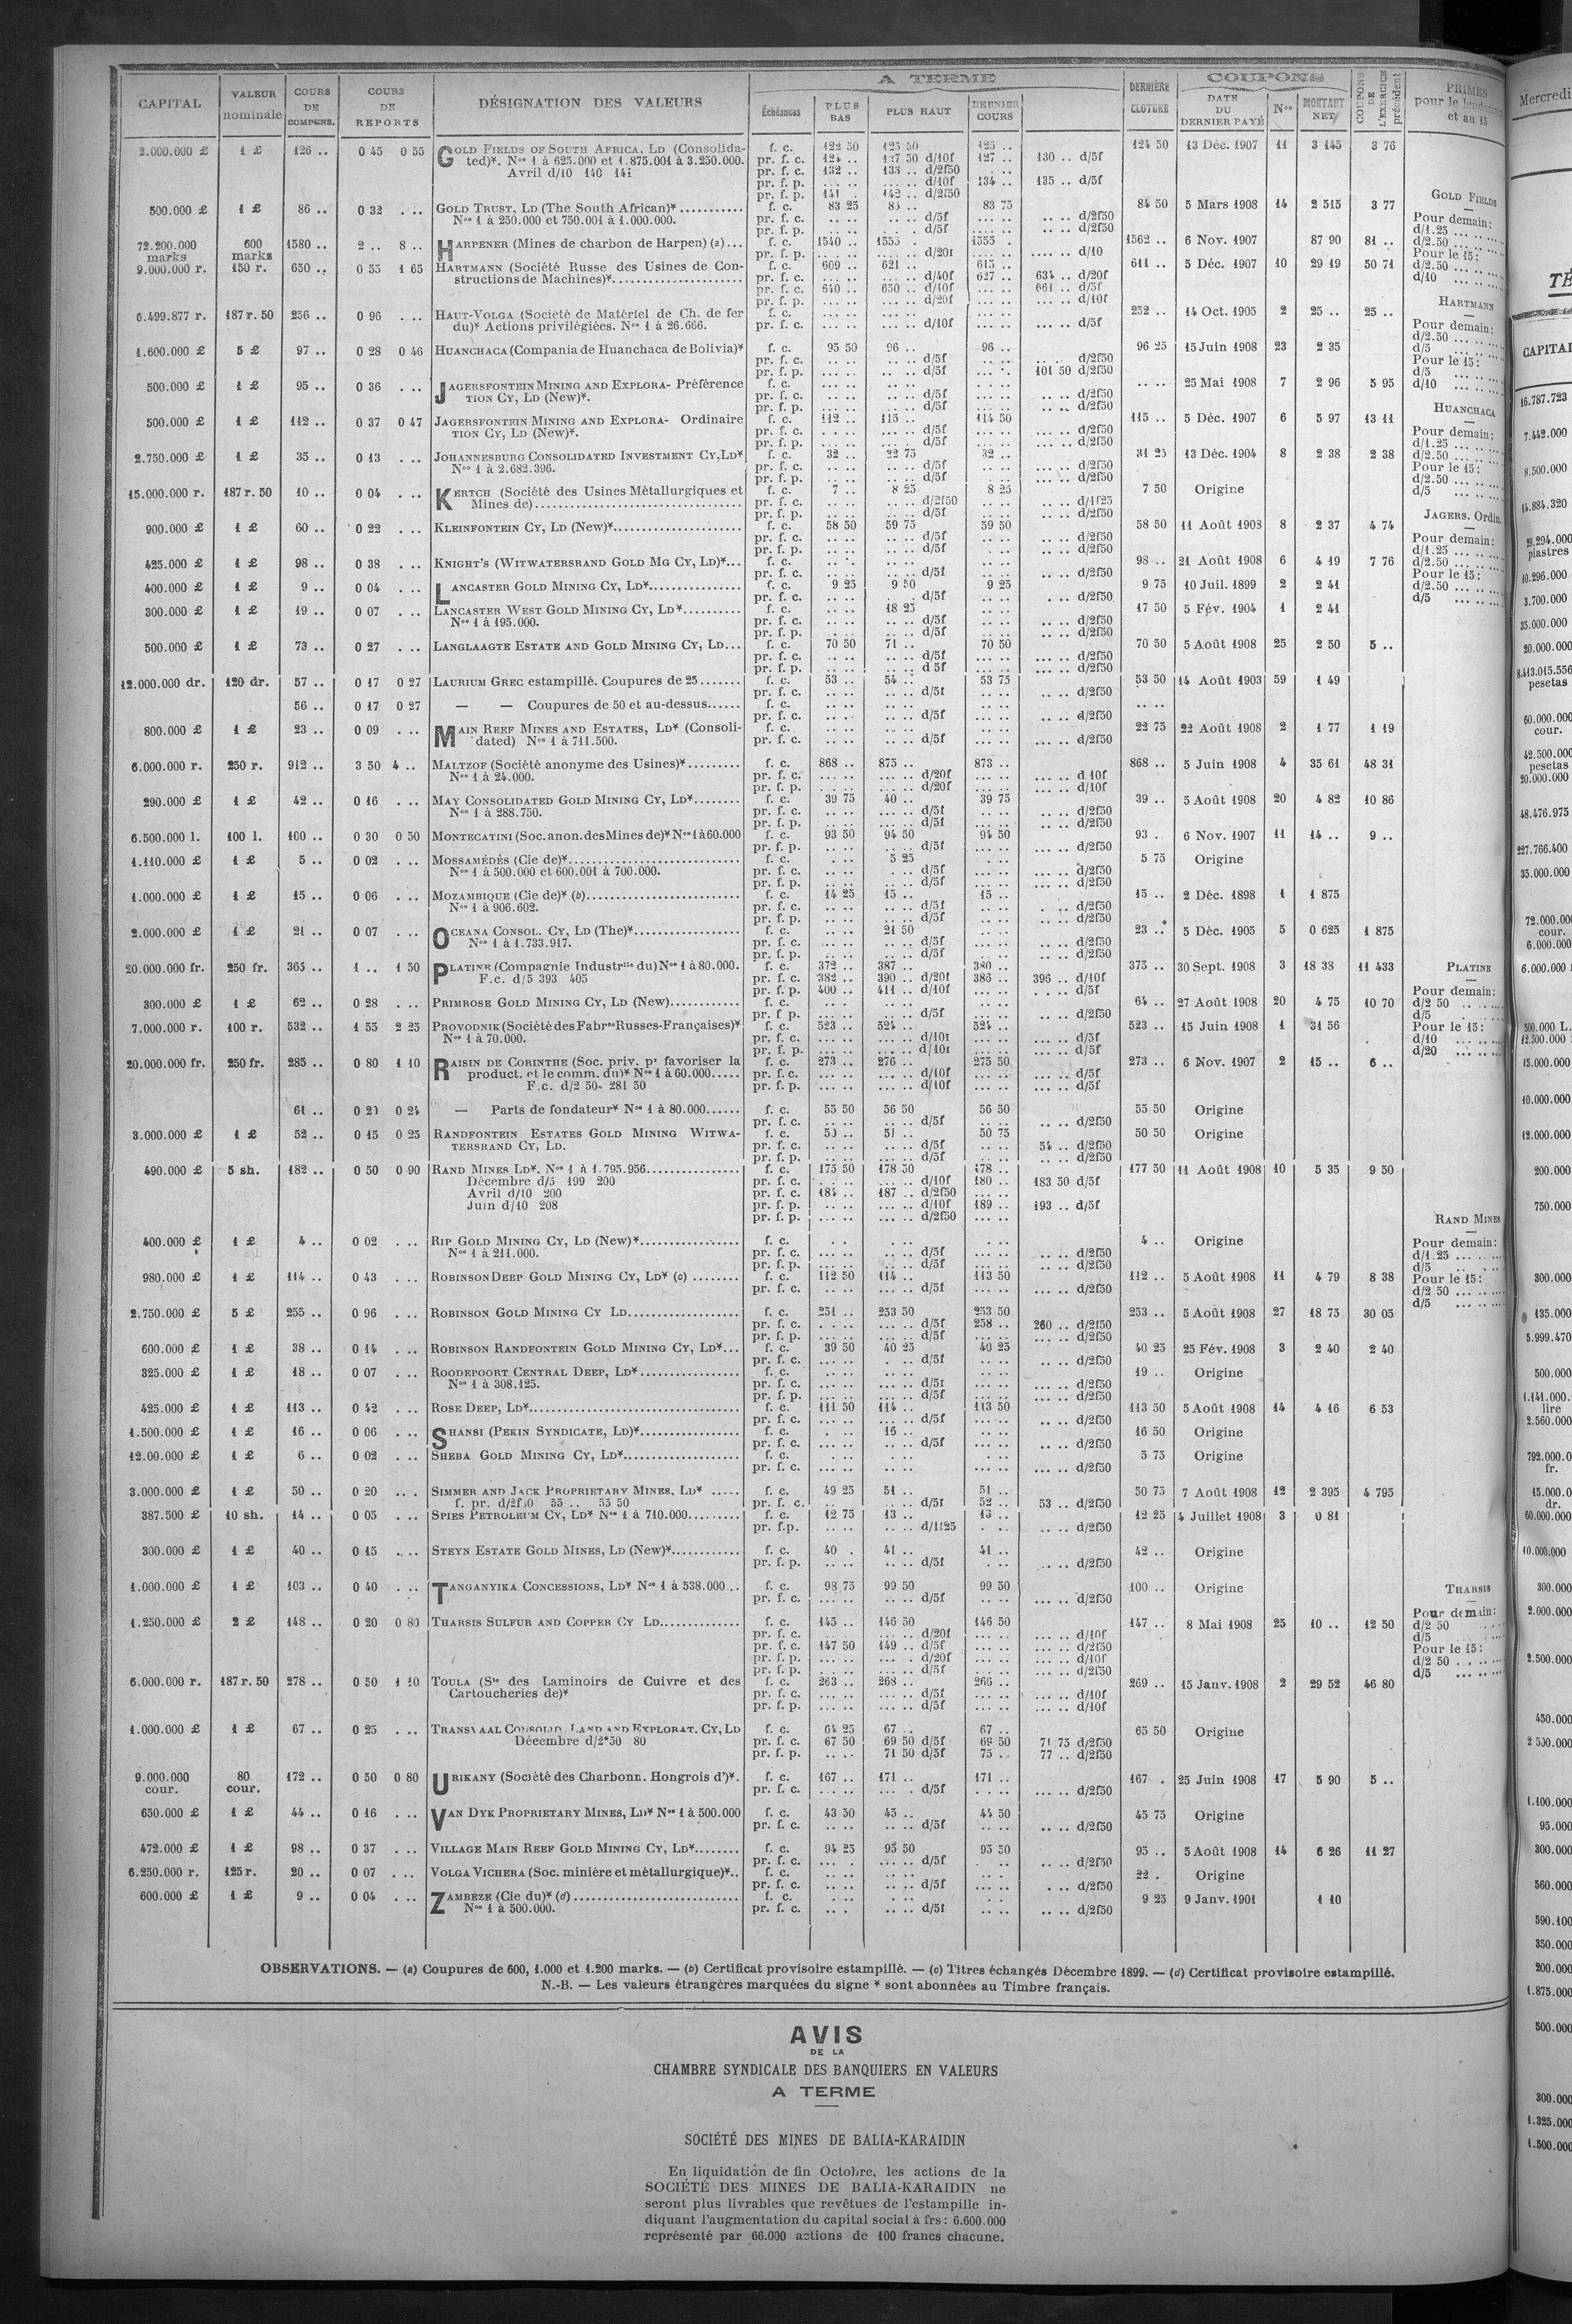 A TERME
COUPONS
CAPITAL
VALEUR nominale
COURS DE COMPENS.
COURS DE REPORTS
DÉSIGNATION DES VALEURS
Échéances
PLUS BAS
PLUS HAUT
DERNIER COURS
DERNIÈRE CLOTURE
DATE DU DERNIER PAYÉ
Nos
MONTANT NET
COUPONS DE L'EXERCICE précédent
PRIMES pour le
et au 15
2.000.000 £ 1 £ 126 .. 0 45 0 55 GOLD FIELDS OF SOUTH AFRICA, LD (Consolida- f. c. 122 50 125 50 125 .. 124 50 13 Déc. 1907 11 3 145 3 76
ted)*. Nos 1 à 625.000 et 1.875.001 à 3.250.000. pr. f. c. 124 .. 127 50 d/10f 127 .. 130 .. d/5f
Avril d/10 140 141 pr. f. c. 132 .. 133 .. d/2f50
pr. f. p. d/10f 134 .. 135 .. d/5f
pr. f. p. 141 . 142 .. d/2f50
500.000 £ 1 £ 86 .. 0 32 . .. GOLD TRUST, LD (The South African)* f. c. 83 25 85 .. 83 75 84 50 5 Mars 1908 14 2 515 3 77
Nos 1 à 250.000 et 750.001 à 1.000.000. pr. f. c. d/5f d/2f50
pr. f. p. d/5f d/2f50
72.200.000 marks 600 marks 1580 .. 2 .. 8 .. HARPENER (Mines de charbon de Harpen) (a)... f. c. 1540 .. 1555 . 1555 . 1562 .. 6 Nov. 1907 87 90 81 ..
pr. f. p. d/20f d/10
9.000.000 r. 150 r. 650 .. 0 55 1 65 HARTMANN (Société Russe des Usines de Con- f. c. 609 .. 621 .. 615 .. 611 .. 5 Déc. 1907 10 29 19 50 71
structions de Machines)* pr. f. c. d/40f 627 .. 634 .. d/20f
pr. f. c. 640 .. 650 .. d/10f 661 .. d/5f
pr. f. p. d/20f d/10f
6.499.877 r. 187 r. 50 256 .. 0 96 . .. HAUT-VOLGA (Société de Matériel de Ch. de fer f. c. 252 .. 14 Oct. 1905 2 25 .. 25 ..
du)* Actions privilégiées. Nos 1 à 26.666. pr. f. c. d/10f d/5f
1.600.000 £ 5 £ 97 .. 0 28 0 46 HUANCHACA (Compania de Huanchaca de Bolivia)* f. c. 95 50 96 .. 96 .. 96 25 15 Juin 1908 23 2 35
pr. f. c. d/5f d/2f50
pr. f. p. d/5f 101 50 d/2f50
500.000 £ 1 £ 95 .. 0 36 . .. JAGERSFONTEIN MINING AND EXPLORA- Préférence f. c. 25 Mai 1908 7 2 96 5 95
TION CY, LD (New)*. pr. f. c. d/5f d/2f50
pr. f. p. d/5f d/2f50
500.000 £ 1 £ 112 .. 0 37 0 47 JAGERSFONTEIN MINING AND EXPLORA- Ordinaire f. c. 112 .. 115 .. 114 50 115 .. 5 Déc. 1907 6 5 97 13 11
TION CY, LD (New)*. pr. f. c. d/5f d/2f50
pr. f. p. d/5f d/2f50
2.750.000 £ 1 £ 35 .. 0 13 . .. JOHANNESBURG CONSOLIDATED INVESTMENT CY, LD* f. c. 32 .. 22 75 32 .. 31 25 13 Déc. 1904 8 2 38 2 38
Nos 1 à 2.682.396. pr. f. c. d/5f d/2f50
pr. f. p. d/5f d/2f50
15.000.000 r. 187 r. 50 10 .. 0 04 . .. KERTCH (Société des Usines Métallurgiques et f. c. 7 .. 8 25 8 25 7 50 Origine
Mines de) pr. f. c. d/2f50 d/1f25
pr. f. p. d/5f d/2f50
900.000 £ 1 £ 60 .. 0 22 . .. KLEINFONTEIN CY, LD (New)* f. c. 58 50 59 75 59 50 58 50 11 Août 1908 8 2 37 4 74
pr. f. c. d/5f d/2f50
pr. f. p. d/5f d/2f50
425.000 £ 1 £ 98 .. 0 38 . .. KNIGHT'S (WITWATERSRAND GOLD MG CY, LD)*... f. c. 98 .. 21 Août 1908 6 4 19 7 76
pr. f. c. d/5f d/2f50
400.000 £ 1 £ 9 .. 0 04 . .. LANCASTER GOLD MINING CY, LD* f. c. 9 25 9 50 9 25 9 75 10 Juil. 1899 2 2 41
pr. f. c. d/5f d/2f50
300.000 £ 1 £ 19 .. 0 07 . .. LANCASTER WEST GOLD MINING CY, LD* f. c. 18 25 17 50 5 Fév. 1904 1 2 41
Nos 1 à 195.000. pr. f. c. d/5f d/2f50
pr. f. p. d/5f d/2f50
500.000 £ 1 £ 73 .. 0 27 . .. LANGLAAGTE ESTATE AND GOLD MINING CY, LD... f. c. 70 50 71 .. 70 50 70 50 5 Août 1908 25 2 50 5 ..
pr. f. c. d/5f d/2f50
pr. f. p. d 5f d/2f50
12.000.000 dr. 120 dr. 57 .. 0 17 0 27 LAURIUM GREC estampillé. Coupures de 25 f. c. 53 .. 54 .. 53 75 53 50 14 Août 1903 59 1 49
pr. f. c. d/5f d/2f50
56 .. 0 17 0 27 — — Coupures de 50 et au-dessus f. c.
pr. f. c. d/5f d/2f50
800.000 £ 1 £ 23 .. 0 09 . .. MAIN REEF MINES AND ESTATES, LD* (Consoli- f. c. 22 75 22 Août 1908 2 1 77 1 19
dated) Nos 1 à 711.500. pr. f. c. d/5f d/2f50
6.000.000 r. 250 r. 912 .. 3 50 4 .. MALTZOF (Société anonyme des Usines)* f. c. 868 .. 875 .. 873 .. 868 .. 5 Juin 1908 4 35 61 48 31
Nos 1 à 24.000. pr. f. c. d/20f d 10f
pr. f. p. d/20f d/10f
290.000 £ 1 £ 42 .. 0 16 . .. MAY CONSOLIDATED GOLD MINING CY, LD* f. c. 39 75 40 .. 39 75 39 .. 5 Août 1908 20 4 82 10 86
Nos 1 à 288.750. pr. f. c. d/5f d/2f50
pr. f. p. d/5f d/2f50
6.500.000 l. 100 l. 100 .. 0 30 0 50 MONTECATINI (Soc. anon. des Mines de)* Nos 1 à 60.000 f. c. 93 50 94 50 94 50 93 . 6 Nov. 1907 11 14 .. 9 ..
pr. f. p. d/5f d/2f50
1.110.000 £ 1 £ 5 .. 0 02 . .. MOSSAMÉDÈS (Cie de)* f. c. 5 25 5 75 Origine
Nos 1 à 500.000 et 600.001 à 700.000. pr. f. c. d/5f d/2f50
pr. f. p. d/5f d/2f50
1.000.000 £ 1 £ 15 .. 0 06 . .. MOZAMBIQUE (Cie de)* (b) f. c. 14 25 15 .. 15 .. 15 .. 2 Déc. 1898 1 1 875
Nos 1 à 906.602. pr. f. c. d/5f d/2f50
pr. f. p. d/5f d/2f50
2.000.000 £ 1 £ 21 .. 0 07 . .. OCEANA CONSOL. CY, LD (The)* f. c. 21 50 23 .. 5 Déc. 1905 5 0 625 1 875
Nos 1 à 1.733.917. pr. f. c. d/5f d/2f50
pr. f. p. d/5f d/2f50
20.000.000 fr. 250 fr. 365 .. 1 .. 1 50 PLATINE (Compagnie Industrlle du) Nos 1 à 80.000. f. c. 372 .. 387 .. 380 .. 375 .. 30 Sept. 1908 3 18 38 11 433
F.c. d/5 393 405 pr. f. c. 382 .. 390 .. d/20f 386 .. 396 .. d/10f
pr. f. p. 400 .. 411 .. d/10f d/5f
300.000 £ 1 £ 62 .. 0 28 . .. PRIMROSE GOLD MINING CY, LD (New) f. c. 64 .. 27 Août 1908 20 4 75 10 70
pr. f p. d/5f d/2f50
7.000.000 r. 100 r. 532 .. 1 55 2 25 PROVODNIK (Société des Fabres Russes-Françaises)* f. c. 523 .. 524 .. 524 .. 523 .. 15 Juin 1908 1 31 56
Nos 1 à 70.000. pr. f. c. d/10f d/5f
pr. f. p. d/10f d/5f
20.000.000 fr. 250 fr. 285 .. 0 80 1 10 RAISIN DE CORINTHE (Soc. priv. pr favoriser la f. c. 273 .. 276 .. 275 50 273 .. 6 Nov. 1907 2 15 .. 6 ..
product. et le comm. du)* Nos 1 à 60.000 pr. f. c. d/10f d/5f
F.c. d/2 50. 281 50 pr. f. p. d/10f d/5f
61 .. 0 20 0 24 — Parts de fondateur* Nos 1 à 80.000 f. c. 55 50 56 50 56 50 55 50 Origine
pr. f. c. d/5f d/2f50
3.000.000 £ 1 £ 52 .. 0 15 0 25 RANDFONTEIN ESTATES GOLD MINING WITWA- f. c. 50 .. 51 .. 50 75 50 50 Origine
TERSRAND CY, LD. pr. f. c. d/5f 54 .. d/2f50
pr. f. p. d/5f d/2f50
490.000 £ 5 sh. 182 .. 0 50 0 90 RAND MINES LD*. Nos 1 à 1.795.956 f. c. 175 50 178 50 178 .. 177 50 11 Août 1908 10 5 35 9 50
Décembre d/5 199 200 pr. f. c. d/10f 180 .. 183 50 d/5f
Avril d/10 200 pr. f. c. 184 .. 187 .. d/2f50
Juin d/10 208 pr. f. p. d/10f 189 .. 193 .. d/5f
pr. f. p. d/2f50
400.000 £ 1 £ 4 .. 0 02 . .. RIP GOLD MINING CY, LD (New)* f. c. 4 .. Origine
Nos 1 à 211.000. pr. f. c. d/5f d/2f50
pr. f. p. d/5f d/2f50
980.000 £ 1 £ 114 .. 0 43 . .. ROBINSON DEEP GOLD MINING CY, LD* (c) f. c. 112 50 114 .. 113 50 112 .. 5 Août 1908 11 4 79 8 38
pr. f. c. d/5f d/2f50
2.750.000 £ 5 £ 255 .. 0 96 . .. ROBINSON GOLD MINING CY LD f. c. 251 .. 253 50 253 50 253 .. 5 Août 1908 27 18 75 30 05
pr. f. c. d/5f 258 .. 260 .. d/2f50
pr. f. p. d/5f d/2f50
600.000 £ 1 £ 38 .. 0 14 . .. ROBINSON RANDFONTEIN GOLD MINING CY, LD*... f. c. 39 50 40 25 40 25 40 25 25 Fév. 1908 3 2 40 2 40
pr. f. c. d/5f d/2f50
325.000 £ 1 £ 18 .. 0 07 . .. ROODEPOORT CENTRAL DEEP, LD* f. c. 19 .. Origine
Nos 1 à 308.125. pr. f. c. d/5f d/2f50
pr. f. p. d/5f d/2f50
425.000 £ 1 £ 113 .. 0 42 . .. ROSE DEEP, LD* f. c. 111 50 114 .. 113 50 113 50 5 Août 1908 14 4 16 6 53
pr. f. c. d/5f d/2f50
1.500.000 £ 1 £ 16 .. 0 06 . .. SHANSI (PEKIN SYNDICATE, LD)* f. c. 16 .. 16 50 Origine
pr. f. c. d/5f d/2f50
12.00.000 £ 1 £ 6 .. 0 02 . .. SHEBA GOLD MINING CY, LD* f. c. 5 75 Origine
pr. f. c. d/2f50
3.000.000 £ 1 £ 50 .. 0 20 . .. SIMMER AND JACK PROPRIETARY MINES, LD* f. c. 49 25 51 .. 51 .. 50 75 7 Août 1908 12 2 395 4 795
f. pr. d/2f50 55 .. 55 50 pr. f. c. d/5f 52 .. 53 .. d/2f50
387.500 £ 10 sh. 14 .. 0 05 . .. SPIES PETROLEUM CY, LD* Nos 1 à 710.000 f. c. 12 75 13 .. 13 .. 12 25 4 Juillet 1908 3 0 81
pr. f.p. d/1f25 d/2f50
300.000 £ 1 £ 40 .. 0 15 . .. STEYN ESTATE GOLD MINES, LD (New)* f. c. 40 . 41 .. 41 .. 42 .. Origine
pr. f. p. d/5f d/2f50
1.000.000 £ 1 £ 103 .. 0 40 . .. TANGANYIKA CONCESSIONS, LD* Nos 1 à 538.000 .. f. c. 98 75 99 50 99 50 100 .. Origine
pr. f. c. d/5f d/2f50
1.250.000 £ 2 £ 148 .. 0 20 0 80 THARSIS SULFUR AND COPPER CY LD f. c. 145 .. 146 50 146 50 147 .. 8 Mai 1908 25 10 .. 12 50
pr. f. c. d/20f d/10f
pr. f. c. 147 50 149 .. d/5f d/2f50
pr. f. p. d/20f d/10f
pr. f. p. d/5f d/2f50
6.000.000 r. 187 r. 50 278 .. 0 50 1 10 TOULA (Sté des Laminoirs de Cuivre et des f. c. 263 .. 268 .. 266 .. 269 .. 15 Janv. 1908 2 29 52 46 80
Cartoucheries de)* pr. f. c. d/5f d/10f
pr. f. p. d/5f d/10f
1.000.000 £ 1 £ 67 .. 0 25 . .. TRANSVAAL CONSOLID. LAND AND EXPLORAT. CY, LD f. c. 64 25 67 .. 67 .. 65 50 Origine
Décembre d/2f50 80 pr. f. c. 67 50 69 50 d/5f 69 50 71 75 d/2f50
pr. f. p. 71 50 d/5f 75 .. 77 .. d/2f50
9.000.000 cour. 80 cour. 172 .. 0 50 0 80 URIKANY (Société des Charbonn. Hongrois d')*. f. c. 167 .. 171 .. 171 .. 167 . 25 Juin 1908 17 5 90 5 ..
pr. f. c. d/5f d/2f50
650.000 £ 1 £ 44 .. 0 16 . .. VAN DYK PROPRIETARY MINES, LD* Nos 1 à 500.000 f. c. 43 50 45 .. 44 50 45 75 Origine
pr. f. c. d/5f d/2f50
472.000 £ 1 £ 98 .. 0 37 VILLAGE MAIN REEF GOLD MINING CY, LD* f. c. 94 25 95 50 95 50 95 .. 5 Août 1908 14 6 26 11 27
pr. f. c. d/5f d/2f50
6.250.000 r. 125 r. 20 .. 0 07 . .. VOLGA VICHERA (Soc. minière et métallurgique)*.. f. c. 22 . Origine
pr. f. c. d/5f d/2f50
600.000 £ 1 £ 9 .. 0 04 . .. ZAMBÈZE (Cie du)* (d) f. c. 9 25 9 Janv. 1901 1 10
Nos 1 à 500.000. pr. f. c. d/5f d/2f50
GOLD FIELDS
Pour demain:
d/1.25
d/2.50
Pour le 15:
d/2.50
d/10
HARTMANN
Pour demain:
d/2.50
d/5
Pour le 15:
d/5
d/10
HUANCHACA
Pour demain:
d/1.25
d/2.50
Pour le 15:
d/2.50
d/5
JAGERS. Ordin.
Pour demain:
d/1.25
d/2.50
Pour le 15:
d/2.50
d/5
PLATINE
Pour demain:
d/2 50
d/5
Pour le 15:
d/10
d/20
RAND MINES
Pour demain:
d/1.25
d/5
Pour le 15:
d/2 50
d/5
THARSIS
Pour demain:
d/2 50
d/5
Pour le 15:
d/2 50
d/5
OBSERVATIONS. — (a) Coupures de 600, 1.000 et 1.200 marks. — (b) Certificat provisoire estampillé. — (c) Titres échangés Décembre 1899. — (d) Certificat provisoire estampillé.
N.-B. — Les valeurs étrangères marquées du signe * sont abonnées au Timbre français.
AVIS
DE LA
CHAMBRE SYNDICALE DES BANQUIERS EN VALEURS
A TERME
SOCIÉTÉ DES MINES DE BALIA-KARAIDIN
En liquidation de fin Octobre, les actions de la
SOCIÉTÉ DES MINES DE BALIA-KARAIDIN ne
seront plus livrables que revêtues de l'estampille in-
diquant l'augmentation du capital social à frs: 6.600.000
représenté par 66.000 actions de 100 francs chacune.
Mercredi
TÉ
CAPITAL
16.787.723
7.442.000
8.500.000
14.884.320
piastres
10.296.000
3.700.000
25.000.000
20.000.000
8.413.015.556
pesetas
60.000.000
cour.
42.500.000
pesetas
20.000.000
48.476.975
227.766.400
35.000.000
72.000.000
cour.
6.000.000
6.000.000
500.000 L.
12.500.000
15.000.000
10.000.000
12.000.000
200.000
750.000
300.000
135.000
5.999.470
500.000
1.141.000.
lire
2.560.000
792.000.0
fr.
15.000.0
dr.
60.000.000
10.000.000
300.000
2.000.000
2.500.000
450.000
2 500.000
1.100.000
95.000
300.000
560.000
590.100
350.000
200.000
1.875.000
500.000
300.000
1.325.000
1.500.000